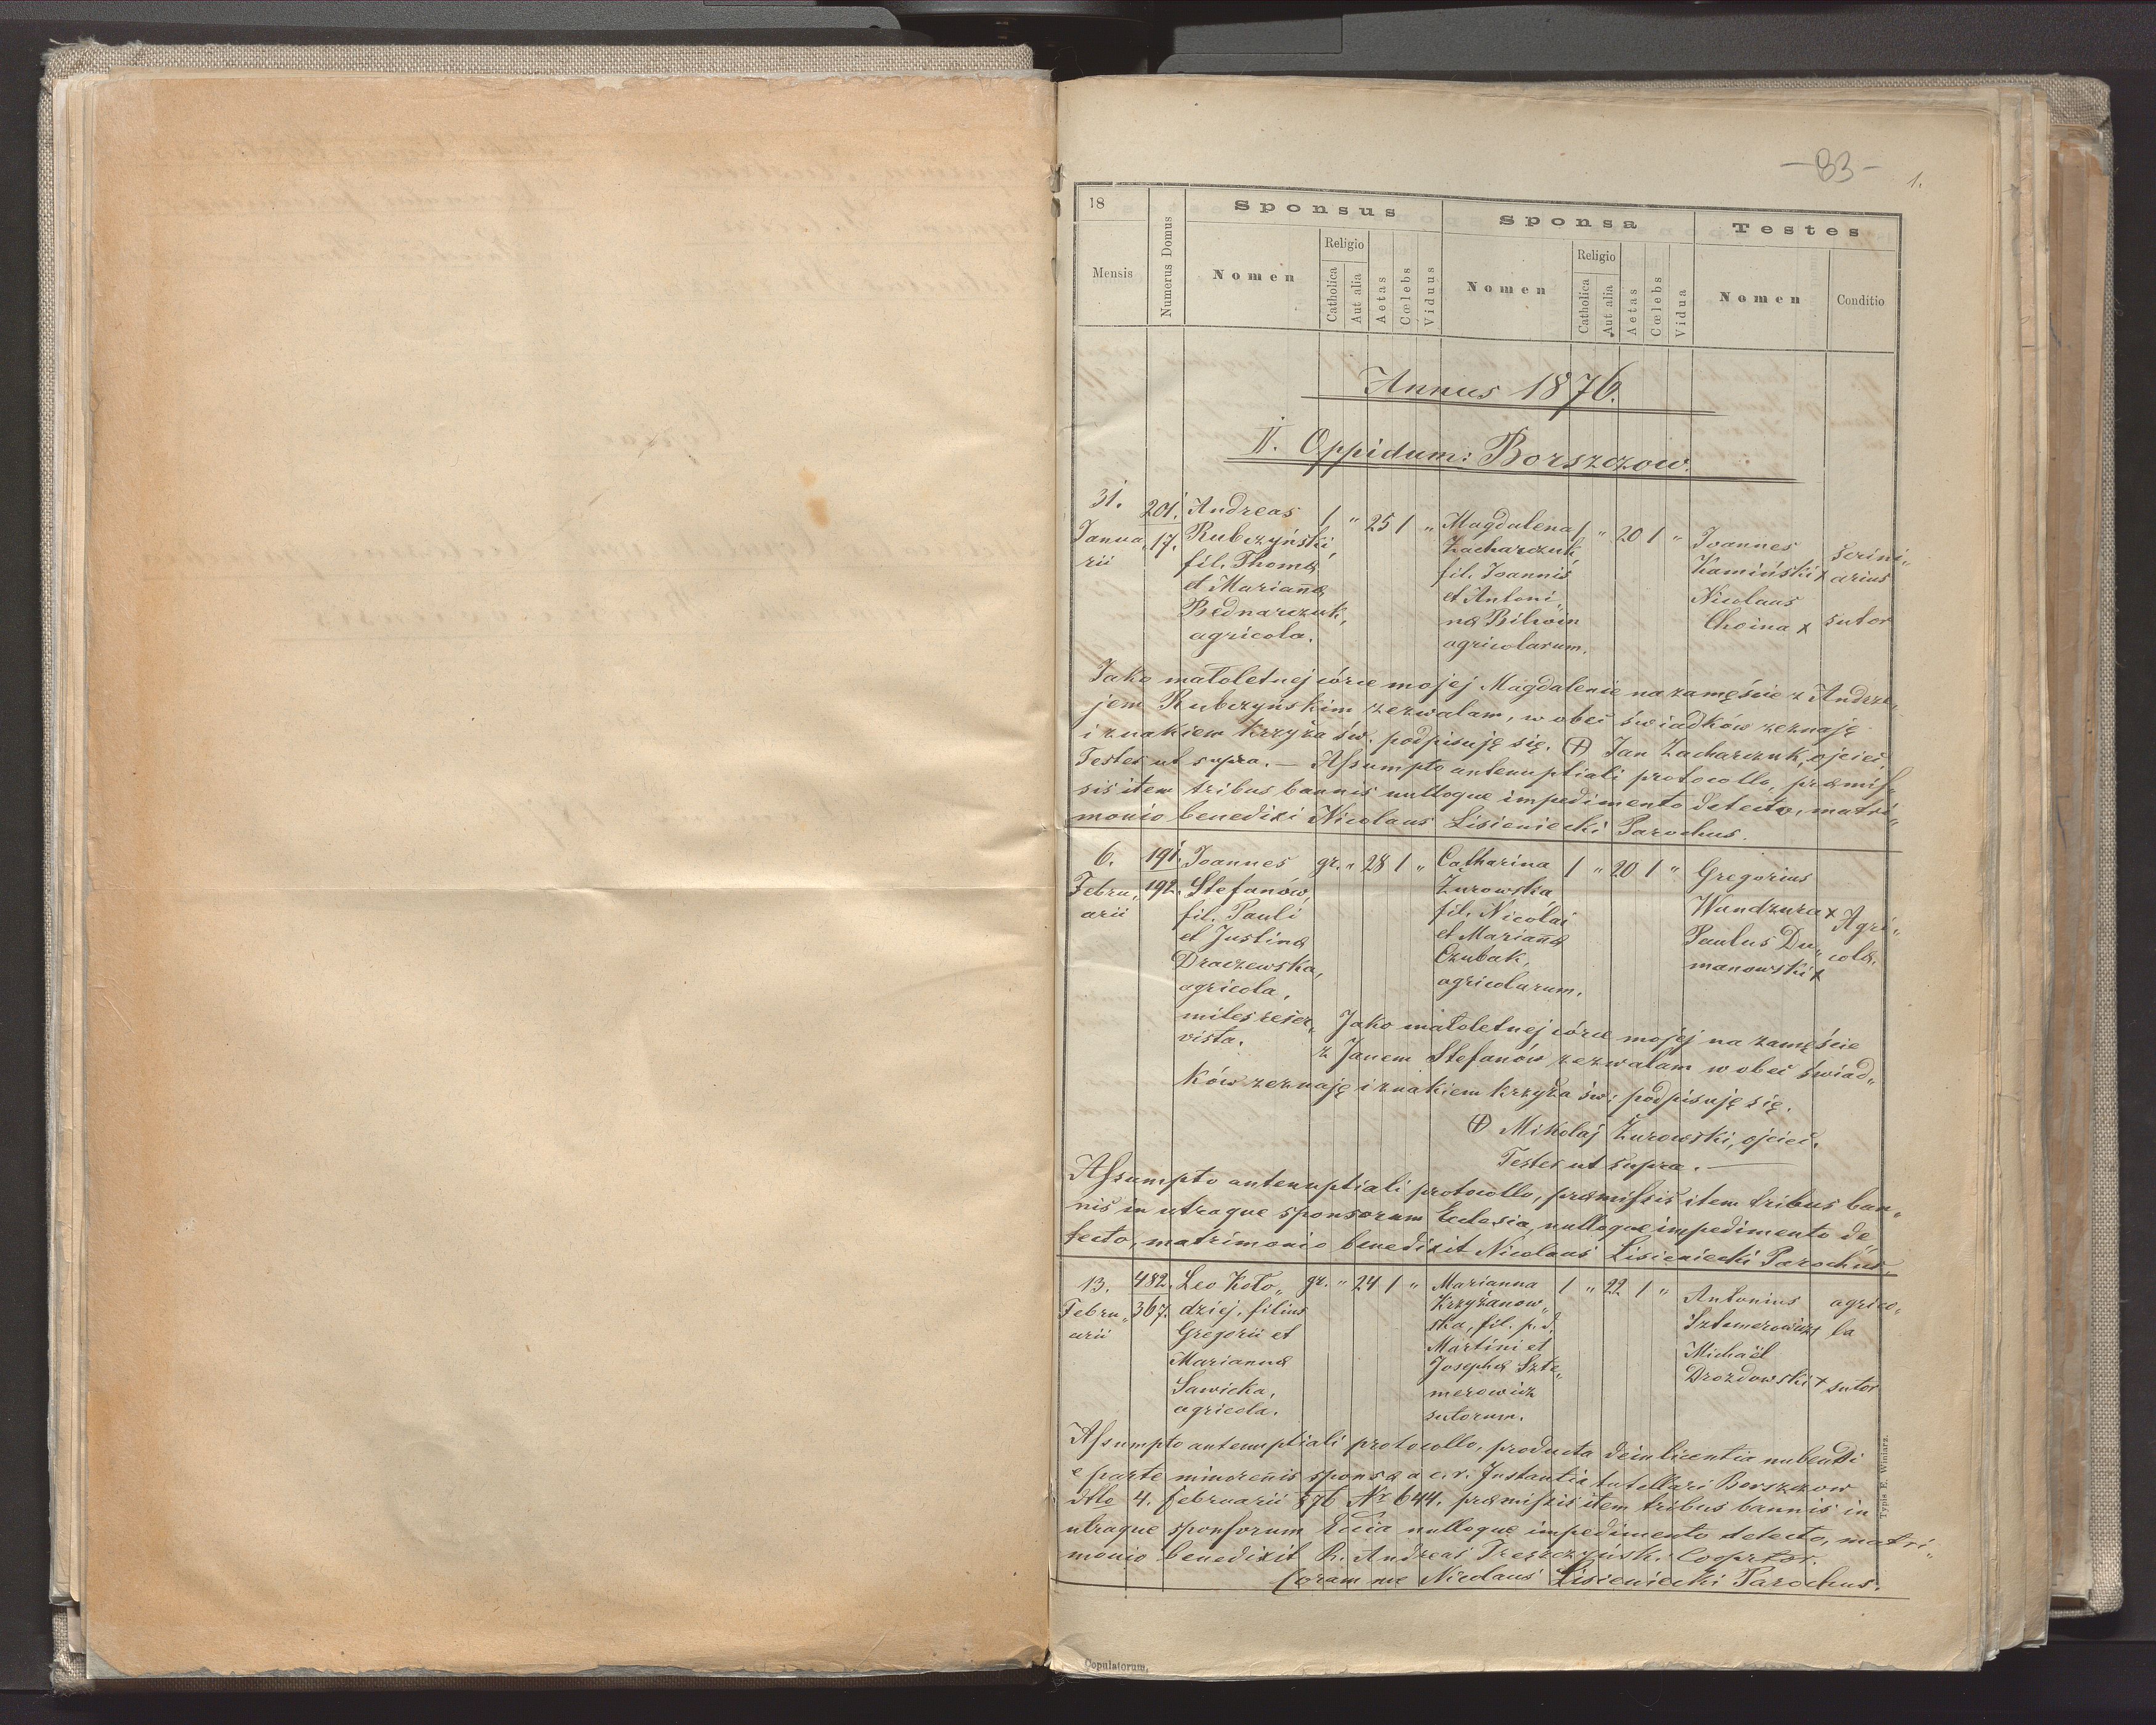 -83-
1.
18
Mensis
Numerus Domus
Sponsus
Nomen
Religio
Catholica
Aut alia
Aetas
Cœlebs
Viduus
Sponsa
Nomen
Religio
Catholica
Aut alia
Aetas
Cœlebs
Vidua
Testes
Nomen
Conditio
Annus 1876.
II. Oppidum: Borszczow.
31.
Janua„
rii
201.
17.
Andreas
Rubczyński,
fil. Thomæ
et Mariannæ
Bednarczuk,
agricola.
1 „ 25 1 „
Magdalena
Zacharczuk
fil. Joannis
et Antoni„
næ Bilwin
agricolarum.
1 „ 20 1 „
Joannes
Kamiński x
Nicolaus
Choina x
Scrini„
arius
sutor
Jako małoletnej córce mojej Magdalenie na zamęście z Andrze„
jem Rubczyńskim zezwalam, w obec świadków zeznaję
i znakiem krzyża św. podpisuję się. (+) Jan Zacharczuk, ojciec.
Testes ut supra. — Assumpto antenuptiali protocollo, præmis„
sis item tribus bannis nulloque impedimento detecto, matri„
monio benedixi Nicolaus Lisieniecki Parochus.
6.
Febru„
arii
191.
192.
Joannes
Stefanów,
fil. Pauli
et Justinæ
Draczewska,
agricola,
miles reser„
vista.
gr. „ 28 1 „
Catharina
Żurowska,
fil. Nicolai
et Mariannæ
Czubak,
agricolarum.
1 „ 20 1 „
Gregorius
Wandzura x
Paulus Du„
manowski x
Agri„
colæ.
Jako małoletnej córce mojej na zamęście
z Janem Stefanów zezwalam w obec świad„
ków zeznaję i znakiem krzyża św. podpisuję się.
(+) Mikołaj Żurowski, ojciec.
Testes ut supra. —
Assumpto antenuptiali protocollo, præmissis item tribus ban„
nis in utraque sponsorum Ecclesia, nulloque impedimento de„
tecto, matrimonio benedixit Nicolaus Lisieniecki Parochus.
13.
Febru„
arii
482.
367.
Leo Koło„
dziej, filius
Gregorii et
Mariannæ
Sawicka,
agricola.
gr. „ 24 1 „
Marianna
Krzyżanow„
ska, fil. p.d.
Martini et
Josephæ Szte„
merowicz
sutorum.
1 „ 22 1 „
Antonius
Sztemerowicz x
Michaël
Drozdowski x
agrico„
la
sutor
Assumpto antenuptiali protocollo, producta dein licentia nubendi
e parte minorennis sponsæ a c.r. Instantia tutellari Borszczow
ddto 4. februarii 876 Nr 644. præmissis item tribus bannis in
utraque sponsorum Ecclia nulloque impedimento detecto, matri„
monio benedixit R. Andreas Coopztor.
Coram me Nicolaus Lisieniecki Parochus.
Typis E. Winiarz.
Copulatorum.